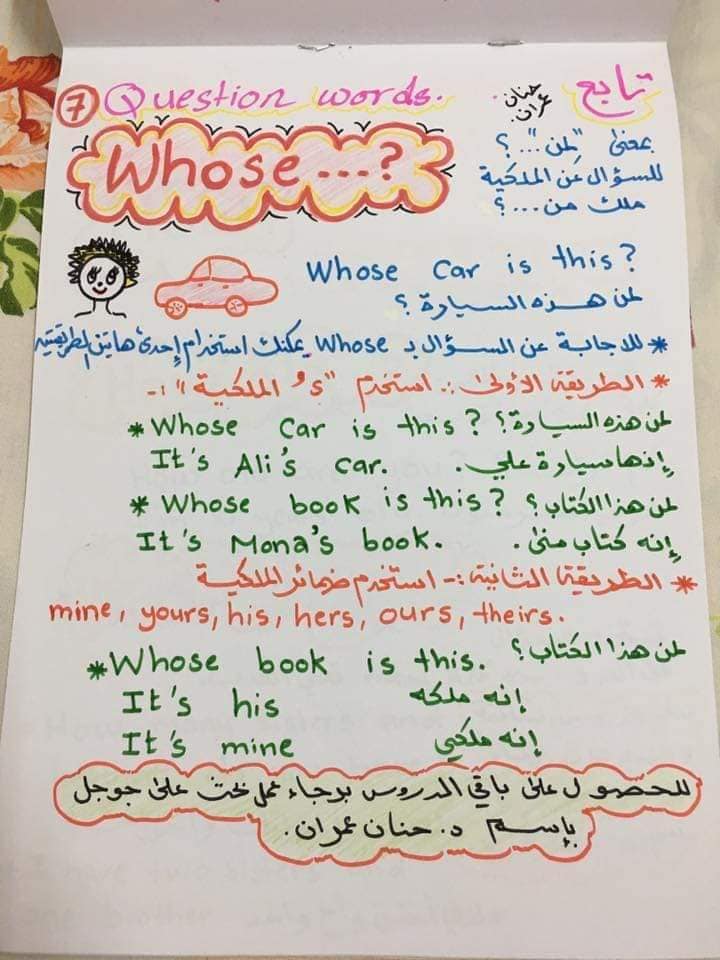 ⑦ Question words. تابع
حنان عمران.
Whose ...?
بمعنى "لمن ..." ؟
للسؤال عن الملكية
ملك من ... ؟
Whose car is this?
لمن هذه السيارة ؟
* للاجابة عن السؤال بـ Whose يمكنك استخدام إحدى هاتين الطريقتين
* الطريقة الأولى :. استخدم "s' الملكية" :-
* Whose car is this? لمن هذه السيارة؟
It's Ali's car. إنها سيارة علي.
* Whose book is this? لمن هذا الكتاب ؟
It's Mona's book. إنه كتاب منى.
* الطريقة الثانية :- استخدم ضمائر الملكية
mine, yours, his, hers, ours, theirs.
* Whose book is this. لمن هذا الكتاب؟
It's his إنه ملكه
It's mine إنه ملكي
للحصول على باقي الدروس برجاء عمل بحث على جوجل
بإسم د. حنان عمران.